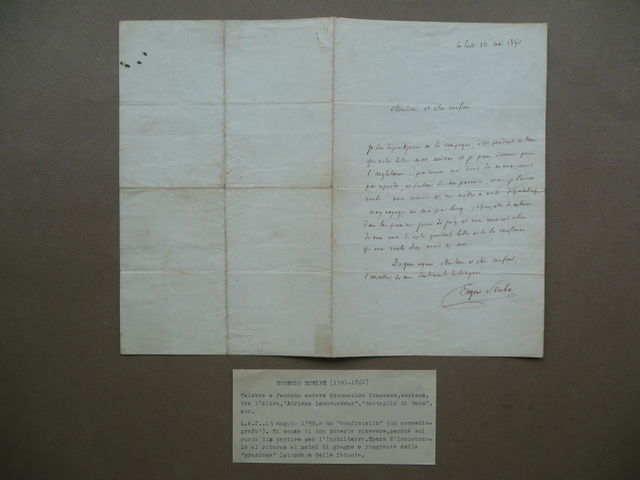 Monsieur et cher confrère
je suis depuis 8 jours à la campagne, c'est pendant ce tems
que votre lettre m'est arrivée et je pars demain pour
l'Angleterre, pardonnez moi donc de ne vous avoir
pas répondu
mon voyage ne sera pas long, j'espère être de retour
dans les premiers jours de juin et vous remercier alors
de vive voix de votre gracieuse lettre et de la confiance
que vous voulez bien avoir en moi
Daignez agréer, Monsieur et cher confrère,
l'assurance de mes sentimens distingués
Eugène Scribe
EUGENIO SCRIBE (1791-1861)
Celebre e fecondo autore drammatico francese, scrisse,
tra l'altro, "Adriana Lecouvreur", "Battaglia di Dame",
etc.
L.a.f., 13 maggio 1850, a un "confratello" (un commedio-
grafo?). Si scusa di non poterlo ricevere, perchè sul
punto di partire per l'Inghilterra. Spera d'incontrar-
lo al ritorno ai primi di giugno e ringrazia della
"graziosa" lettera e della fiducia.